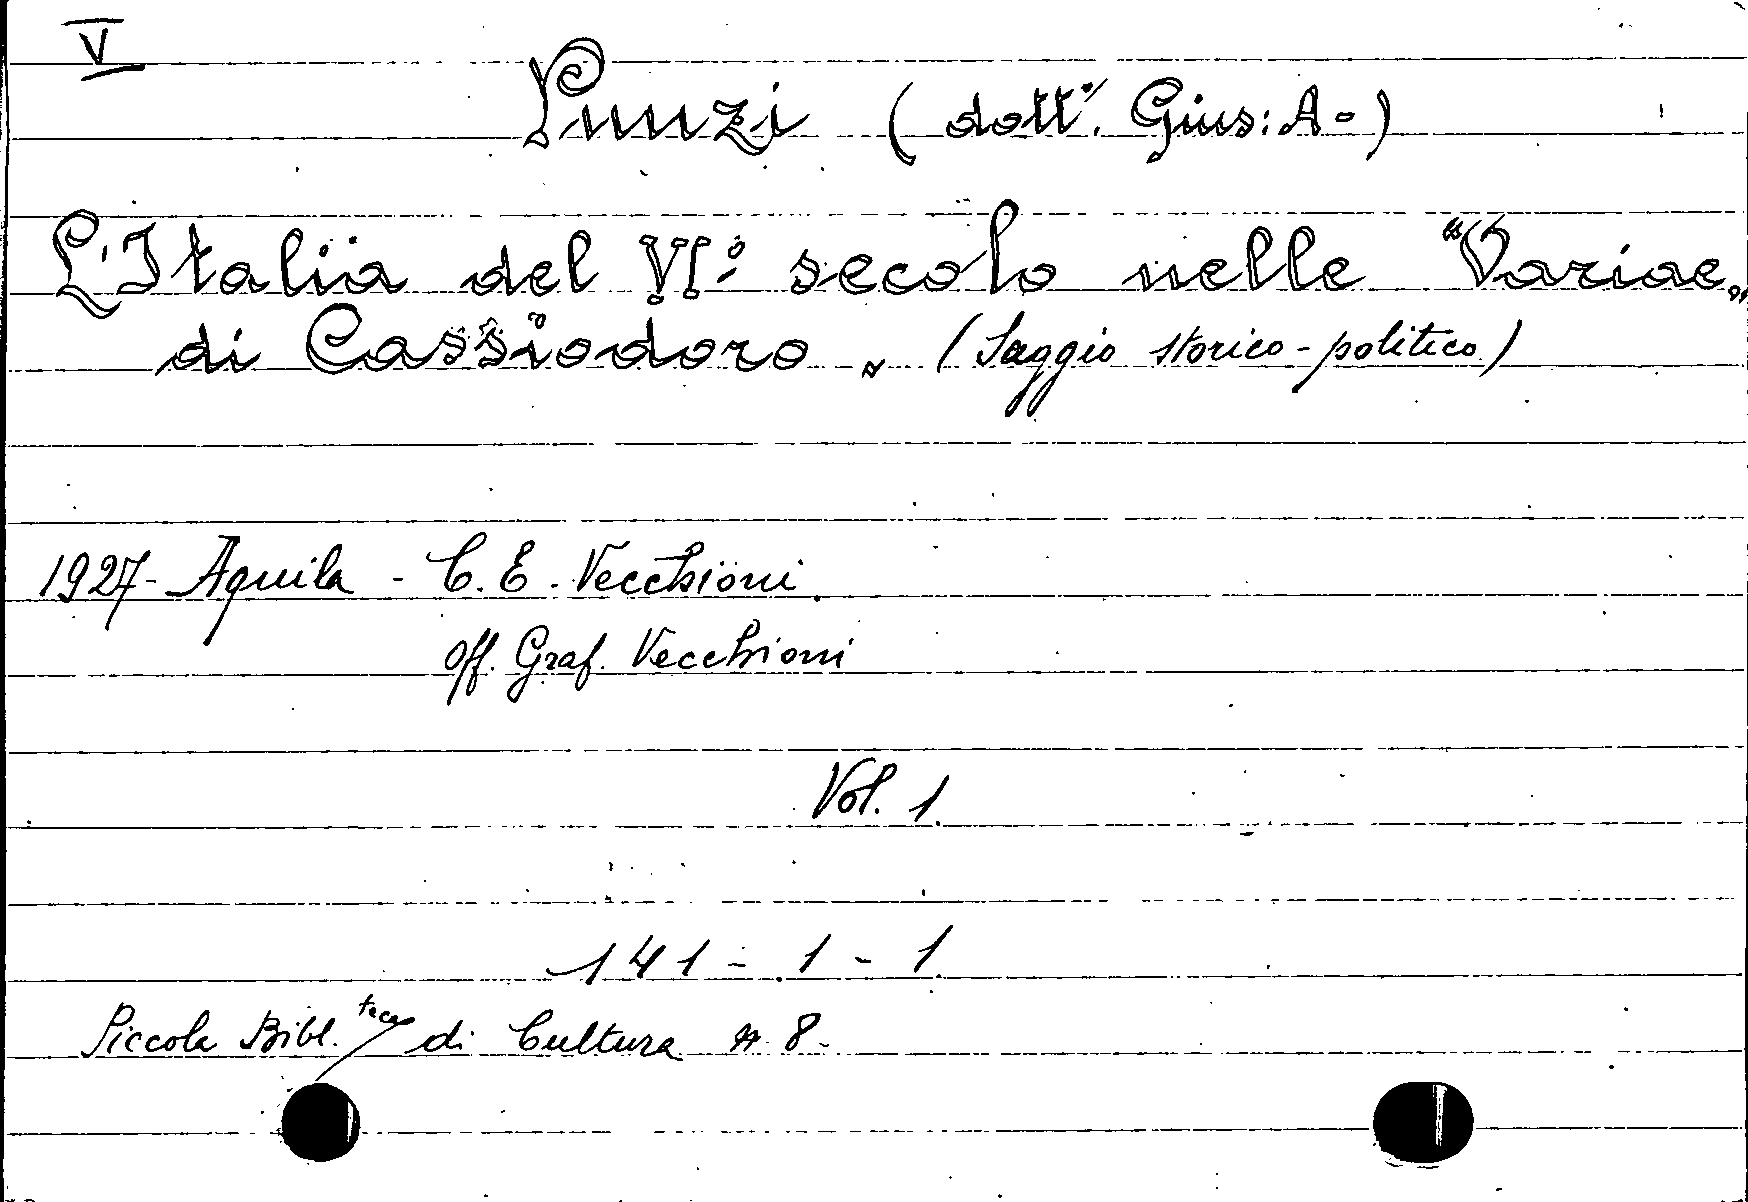 V
Punzi (dott. Gius: A-)
L'Italia del VI° secolo nelle "Variae„
di Cassiodoro „ (Saggio storico-politico)
1927- Aquila - C. E. Vecchioni.
Off. Graf. Vecchioni
Vol. 1.
141 - 1 - 1
Piccola Bibl.teca di Cultura n 8-